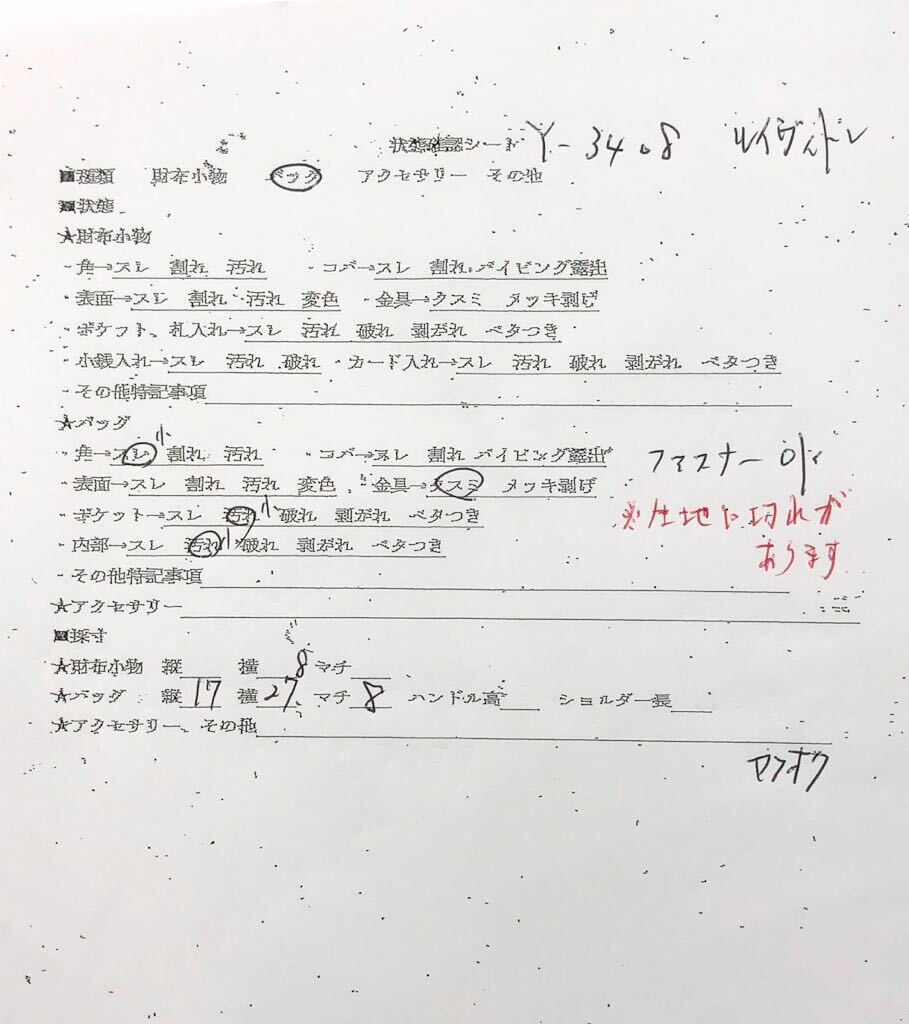 状態確認シート Y-3408 ルイヴィトン
■種類 財布小物 バッグ アクセサリー その他
■状態
★財布小物
・角→スレ 割れ 汚れ ・コバ→スレ 割れ パイピング露出
・表面→スレ 割れ 汚れ 変色 ・金具→クスミ メッキ剥げ
・ポケット、札入れ→スレ 汚れ 破れ 剥がれ ベタつき
・小銭入れ→スレ 汚れ 破れ ・カード入れ→スレ 汚れ 破れ 剥がれ ベタつき
・その他特記事項
★バッグ
・角→スレ小 割れ 汚れ ・コバ→スレ 割れ パイピング露出
・表面→スレ 割れ 汚れ 変色 ・金具→クスミ メッキ剥げ
ファスナーOK
・ポケット→スレ 汚れ小 破れ 剥がれ ベタつき
※生地に切れが
・内部→スレ 汚れ小 破れ 剥がれ ベタつき
あります
・その他特記事項
★アクセサリー
■採寸
★財布小物 縦 横 8 マチ
★バッグ 縦 17 横 27 マチ 8 ハンドル高 ショルダー長
★アクセサリー、その他
ヤフオク